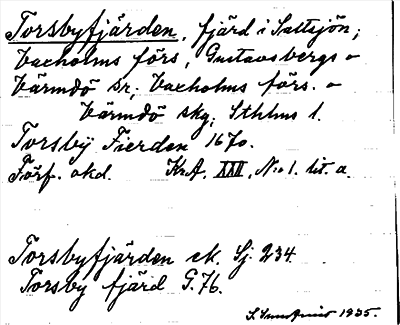 Torsbyfjärden, fjärd i Saltsjön;
Vaxholms förs, Gustavsbergs o
Värmdö sr; Vaxholms förs. o
Värmdö skg; Sthlms l.
Torsbÿ Fierden 1670.
Förf. okd. Kr.A. XXII, N:o 1. lit. a.
Torsbyfjärden ek. Sj. 234.
Torsby fjärd G. 76.
1935.